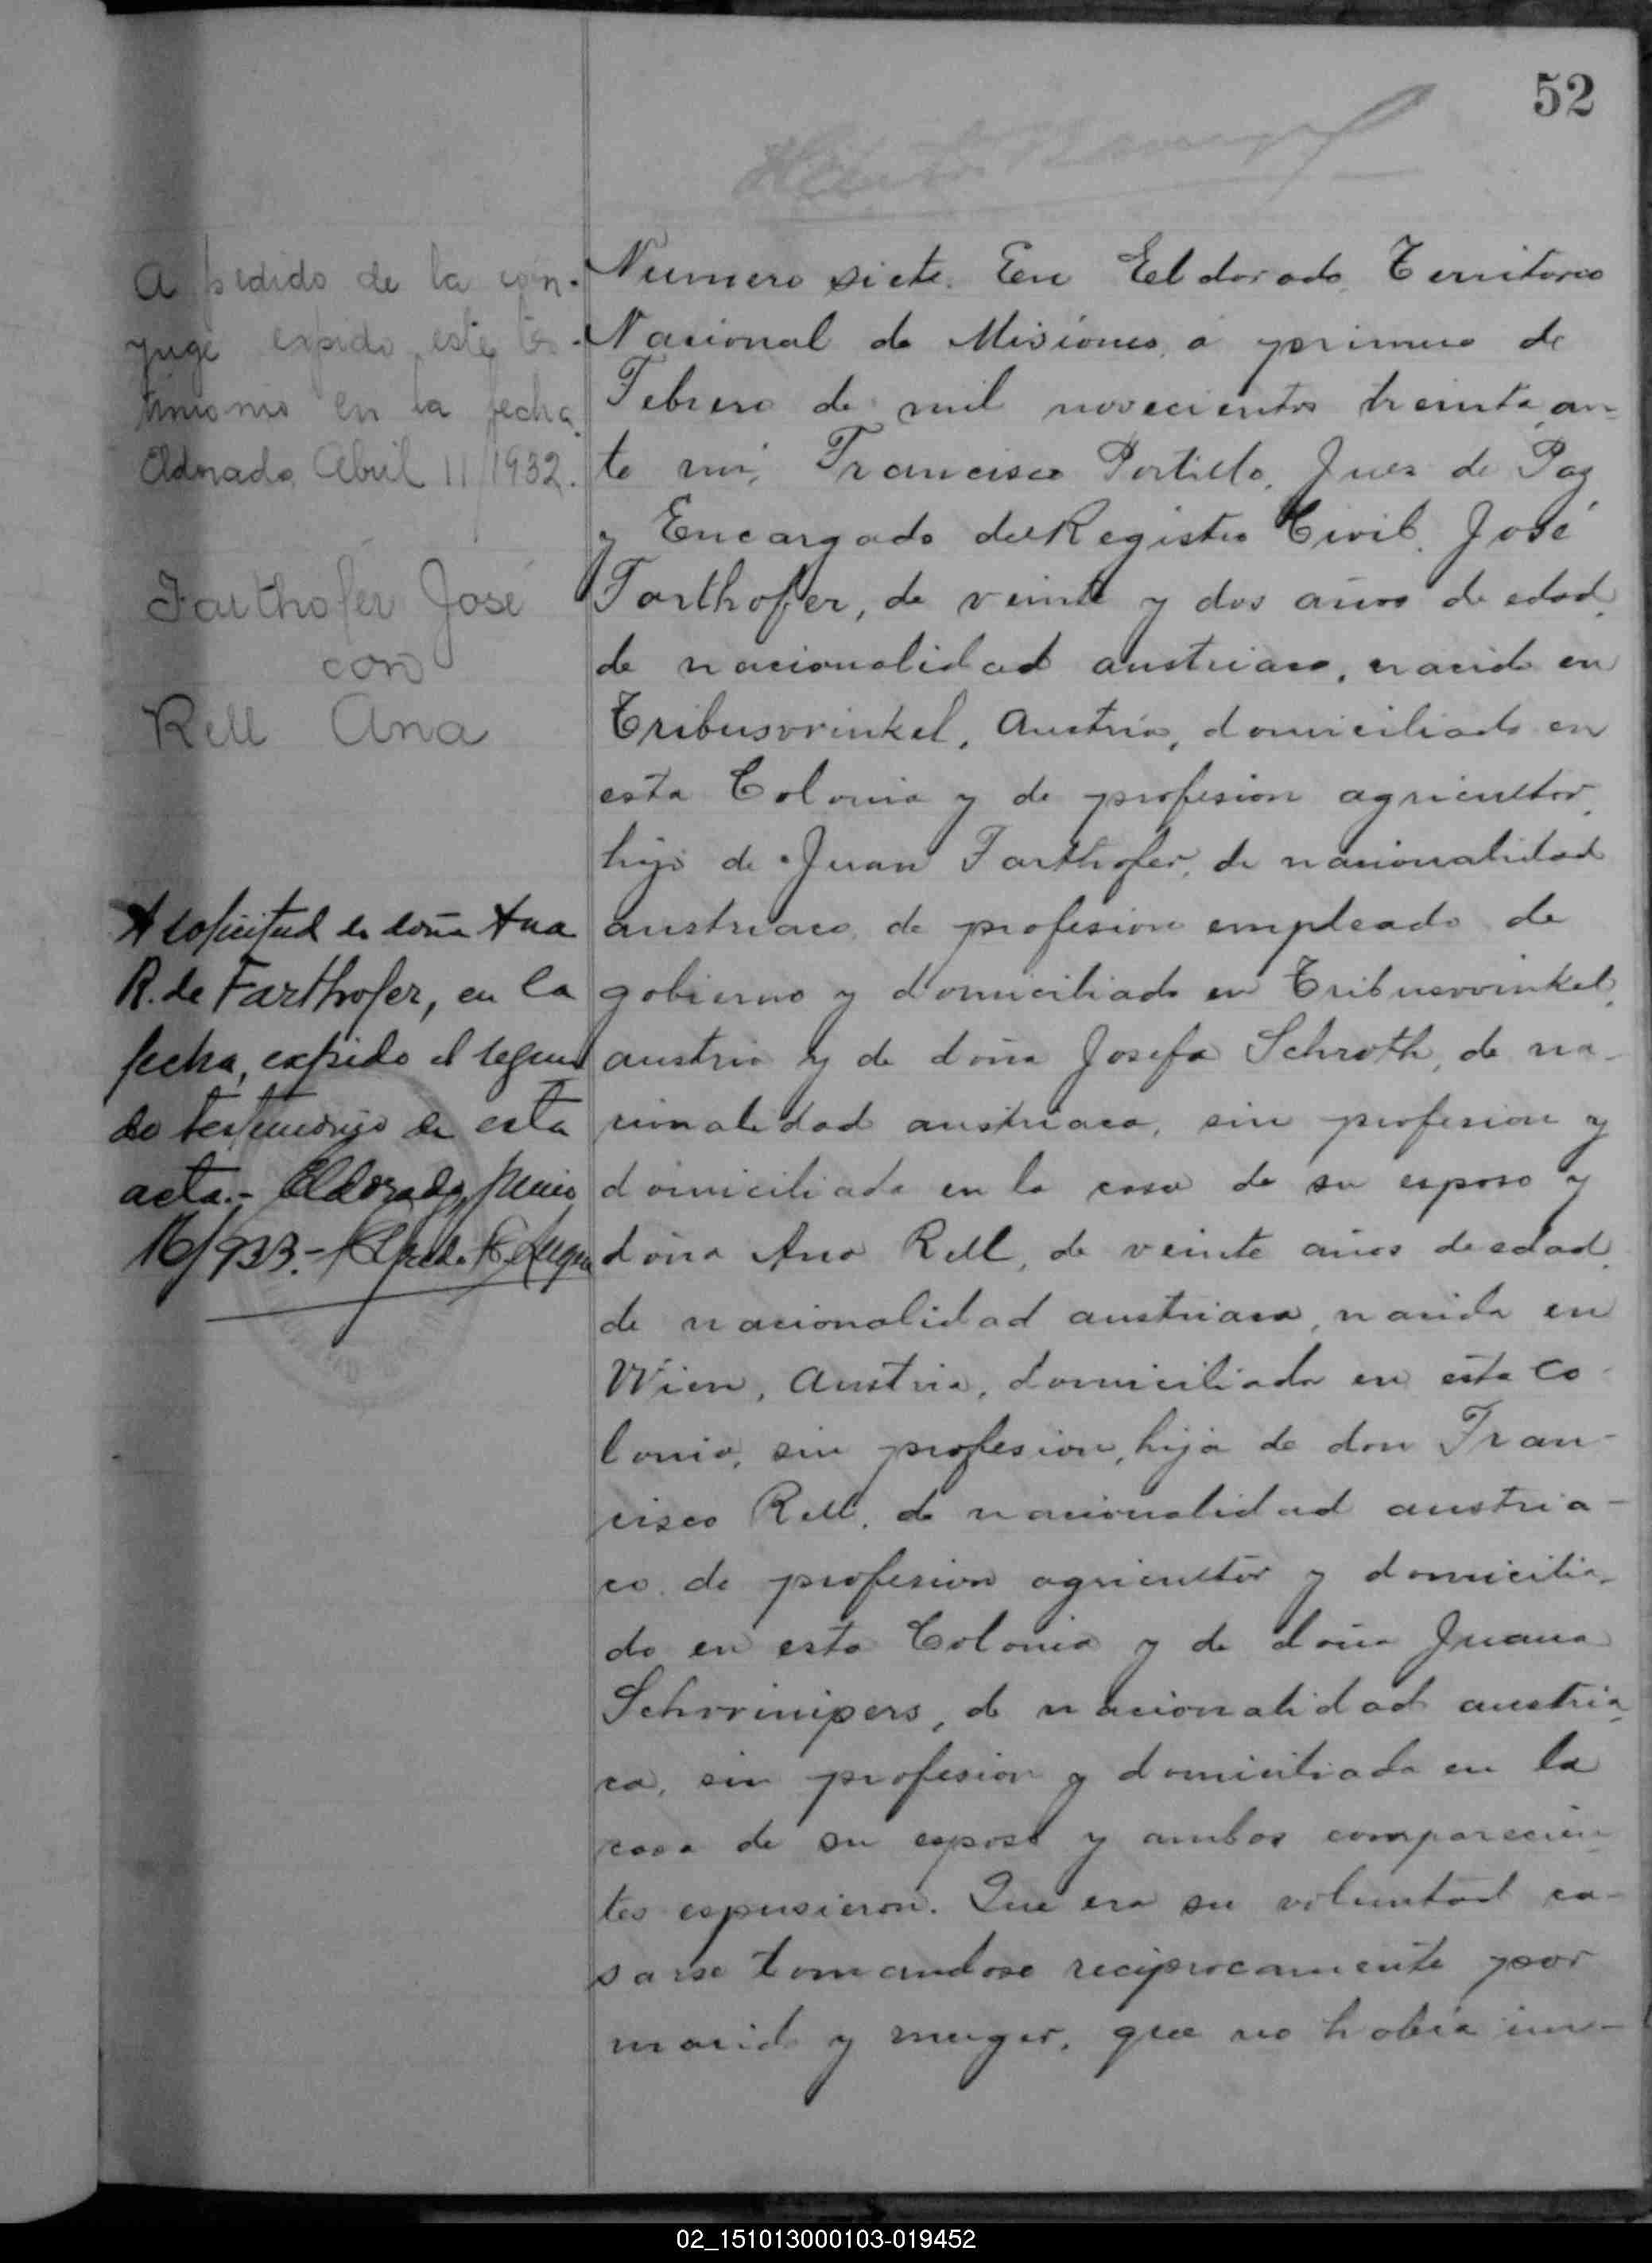 52
A pedido de la cón-
yuge expido este tes-
timonio en la fecha.
Eldorado, Abril 11/1932.
Farthofer José
con
Rell Ana
A solicitud de doña Ana
R. de Farthofer, en la
fecha, expido el segun
do testimonio de esta
acta.- Eldorado, Junio
16/933.-
Numero siete. En Eldorado, Territorio
Nacional de Misiones, a primero de
Febrero de mil novecientos treinta, an-
te mi, Francisco Portillo, Juez de Paz
y Encargado del Registro Civil, José
Farthofer, de veinte y dos años de edad,
de nacionalidad austriaco, nacido en
Tribuswinkel, Austria, domiciliado en
esta Colonia y de profesion agricultor,
hijo de Juan Farthofer, de nacionalidad
austriaco, de profesion empleado de
gobierno y domiciliado en Tribuswinkel,
austria y de doña Josefa Schroth, de na-
cionalidad austriaca, sin profesion y
domiciliada en la casa de su esposo y
doña Ana Rell, de veinte años de edad,
de nacionalidad austriaca, nacida en
Wien, Austria, domiciliada en esta Co-
lonia, sin profesion, hija de don Fran-
cisco Rell, de nacionalidad austria-
co, de profesion agricultor y domicilia-
do en esta Colonia y de doña Juana
Schwinipers, de nacionalidad austria-
ca, sin profesion y domiciliada en la
casa de su esposo y ambos comparecien-
tes espusieron. Que era su voluntad ca-
sarse tomandose reciprocamente por
marido y muger, que no habia im-
02_151013000103-019452